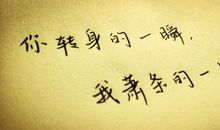 你转身的一瞬，
我萧条的一